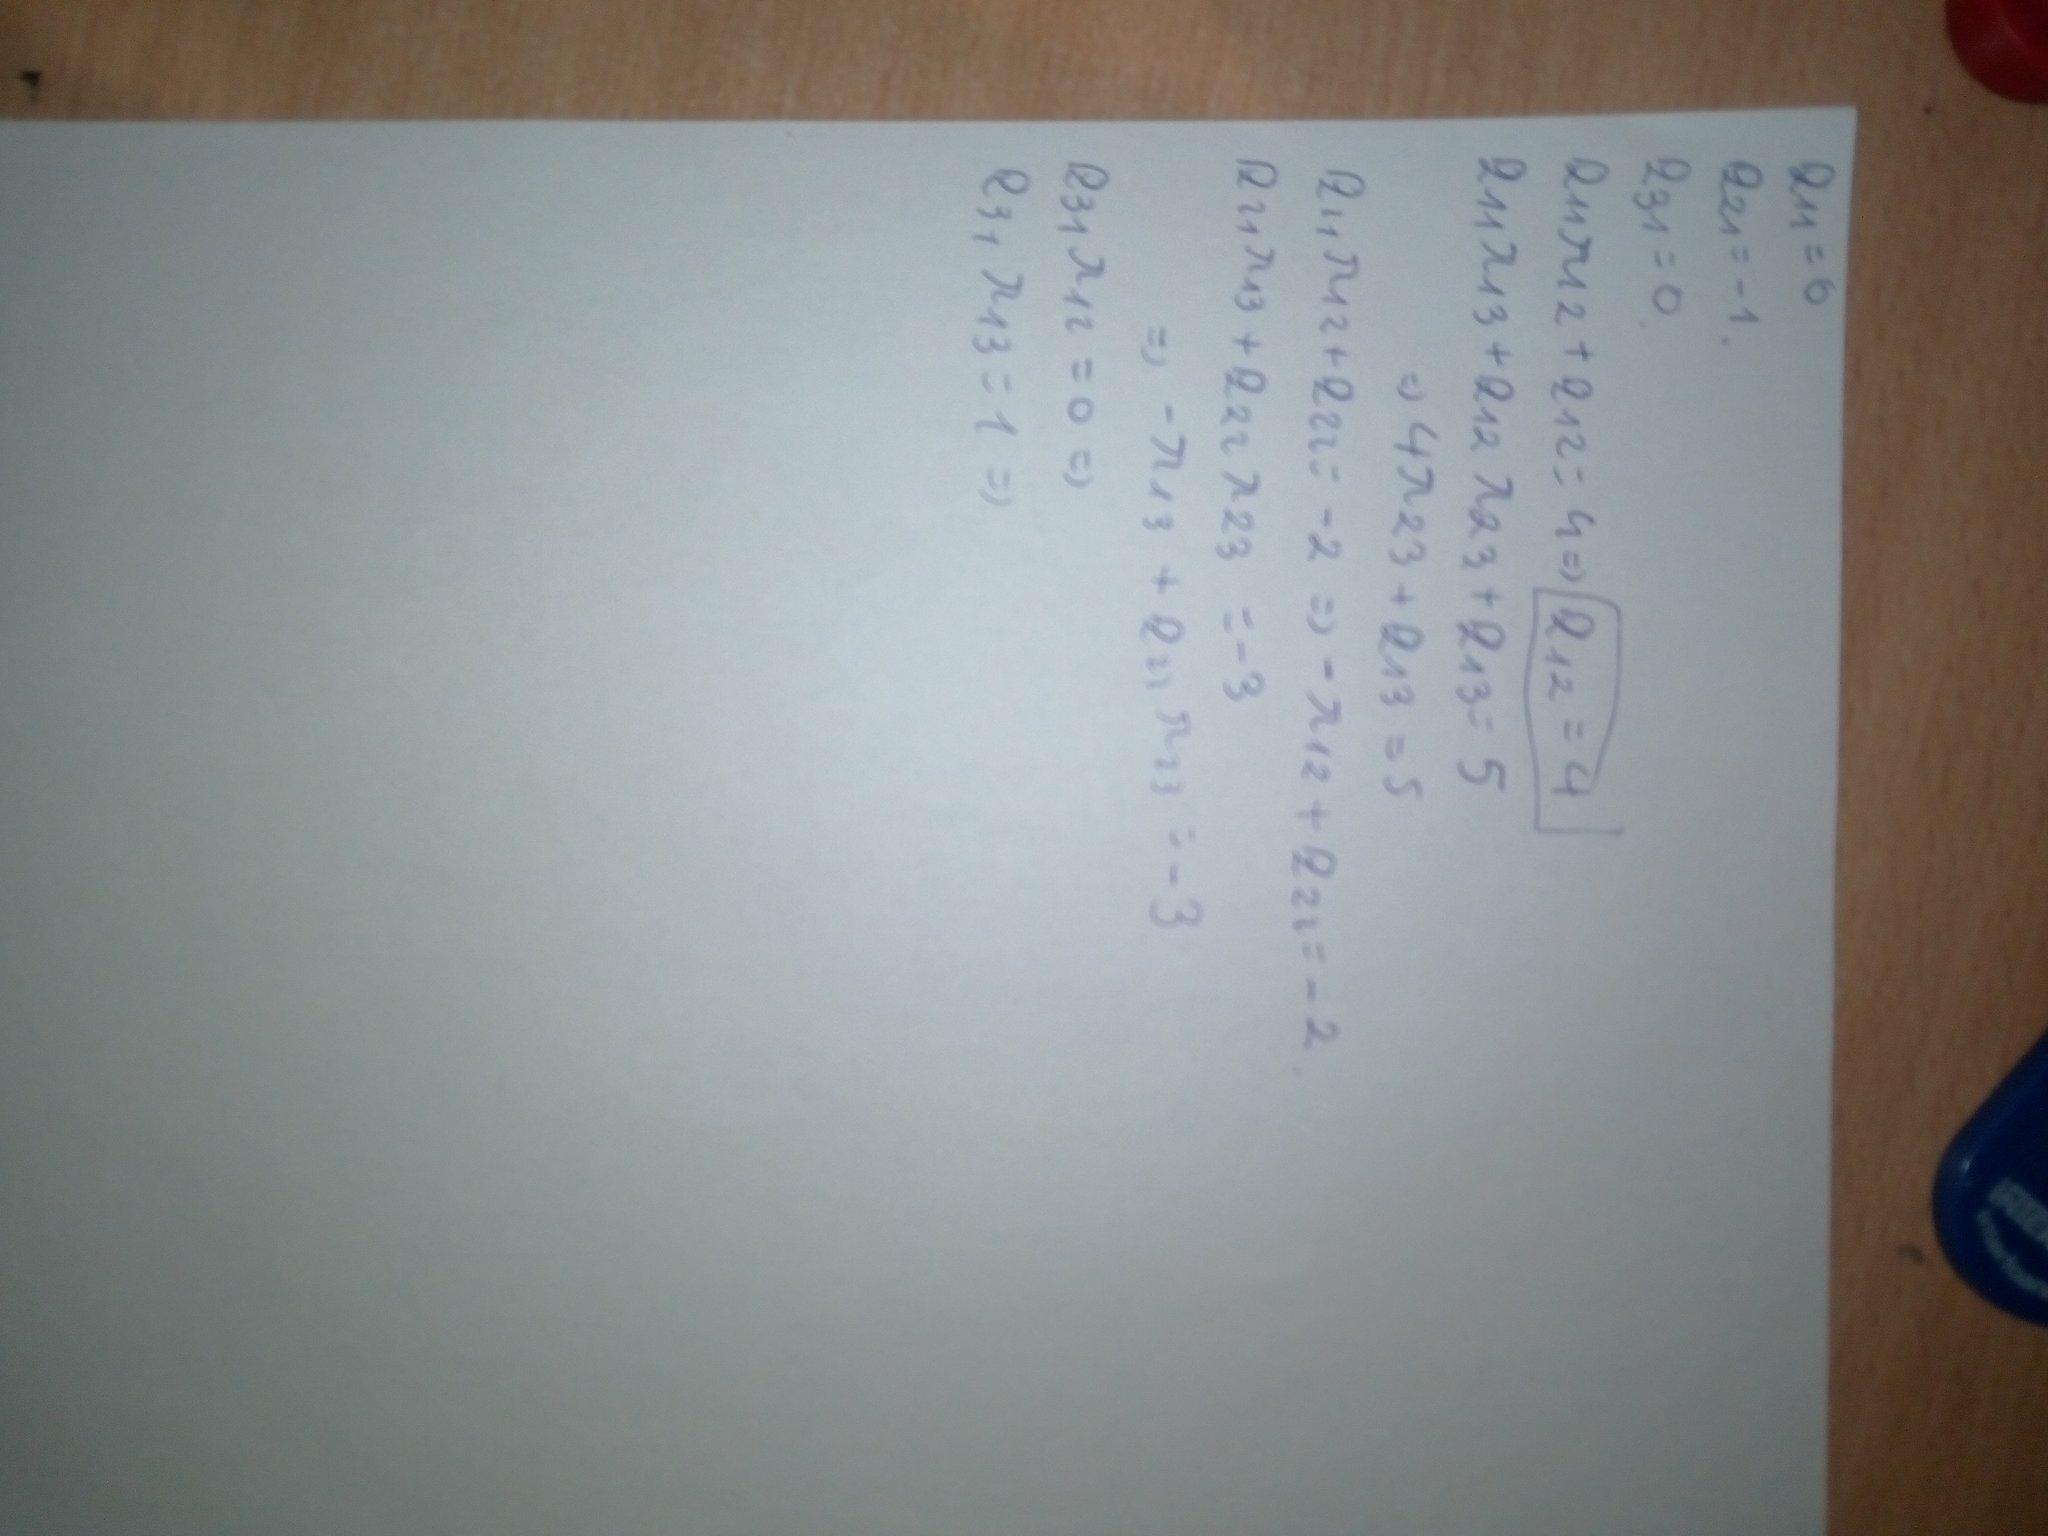 a11 = 0
a21 = -1.
a31 = 0.
a11 r12 + a12 = 4 => a12 = 4
a11 r13 + a12 r23 + a13 = 5
=> 4 r23 + a13 = 5
a21 r12 + a22 = -2 => - r12 + a22 = -2.
a21 r13 + a22 r23 = -3
=> - r13 + a22 r23 = -3
a31 r12 = 0 =>
a31 r13 = 1 =>